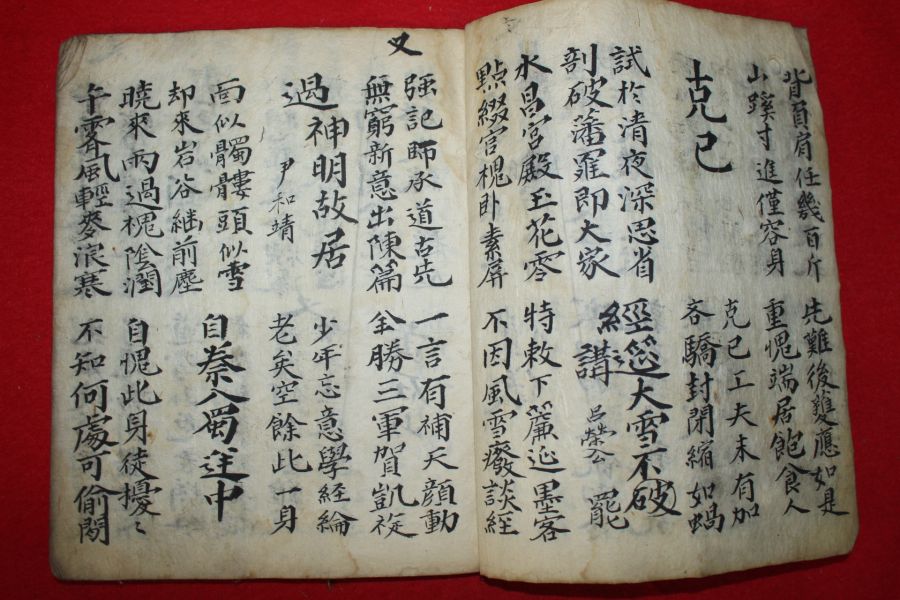 背負肩任幾百斤 先難後獲應如是
山蹊寸進僅容身 重愧端居飽食人
克己 克己工夫未有加
吝驕封閉縮如蝸
試於清夜深思省 經筵大雪不破
剖破藩羅即大家 講 呂榮公 罷
水昌宮殿玉花零 特敕下簾延墨客
點綴宮槐卧素屏 不因風雪癈談經
又
强記師承道古先 一言有補天顔動
無窮新意出陳篇 全勝三軍賀凱旋
過神明故居 少年忘意學經綸
尹和靖 老矣空餘此一身
面似髑髏頭似雪 自秦入蜀途中
却來岩谷継前塵
曉來雨過槐陰潤 自愧此身徒擾〻
午霽風輕麥浪寒 不知何處可偷閑